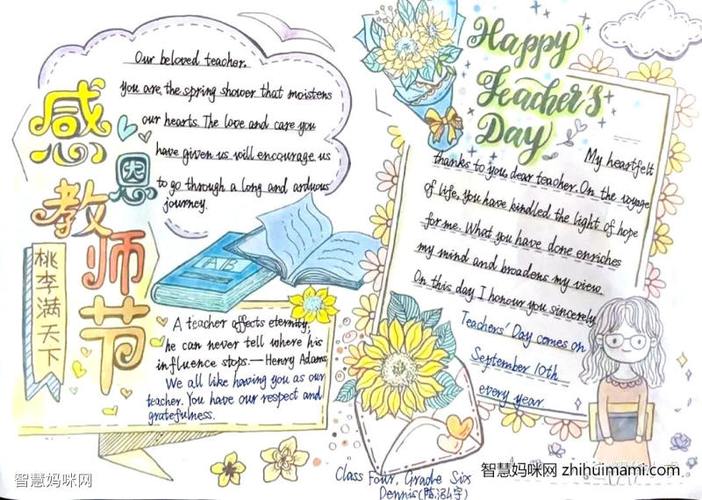 感恩教师节
桃李满天下
Our beloved teacher.
You are the spring shower that moistens
our hearts. The love and care you
have given us will encourage us
to go through a long and arduous
journey.
A/B
A teacher affects eternity,
he can never tell where his
influence stops.—Henry Adams
We all like having you as our
teacher. You have our respect and
gratefulness.
Happy
Teacher's
Day
My heartfelt
thanks to you, dear teacher. On the voyage
of life, you have kindled the light of hope
for me. What you have done enriches
my mind and broadens my view.
On this day I honour you sincerely
Teachers' Day comes on
September 10th
every year
Class Four, Grade Six
Dennis(陈泓宇)
智慧妈咪网
智慧妈咪网 zhihuimami.com